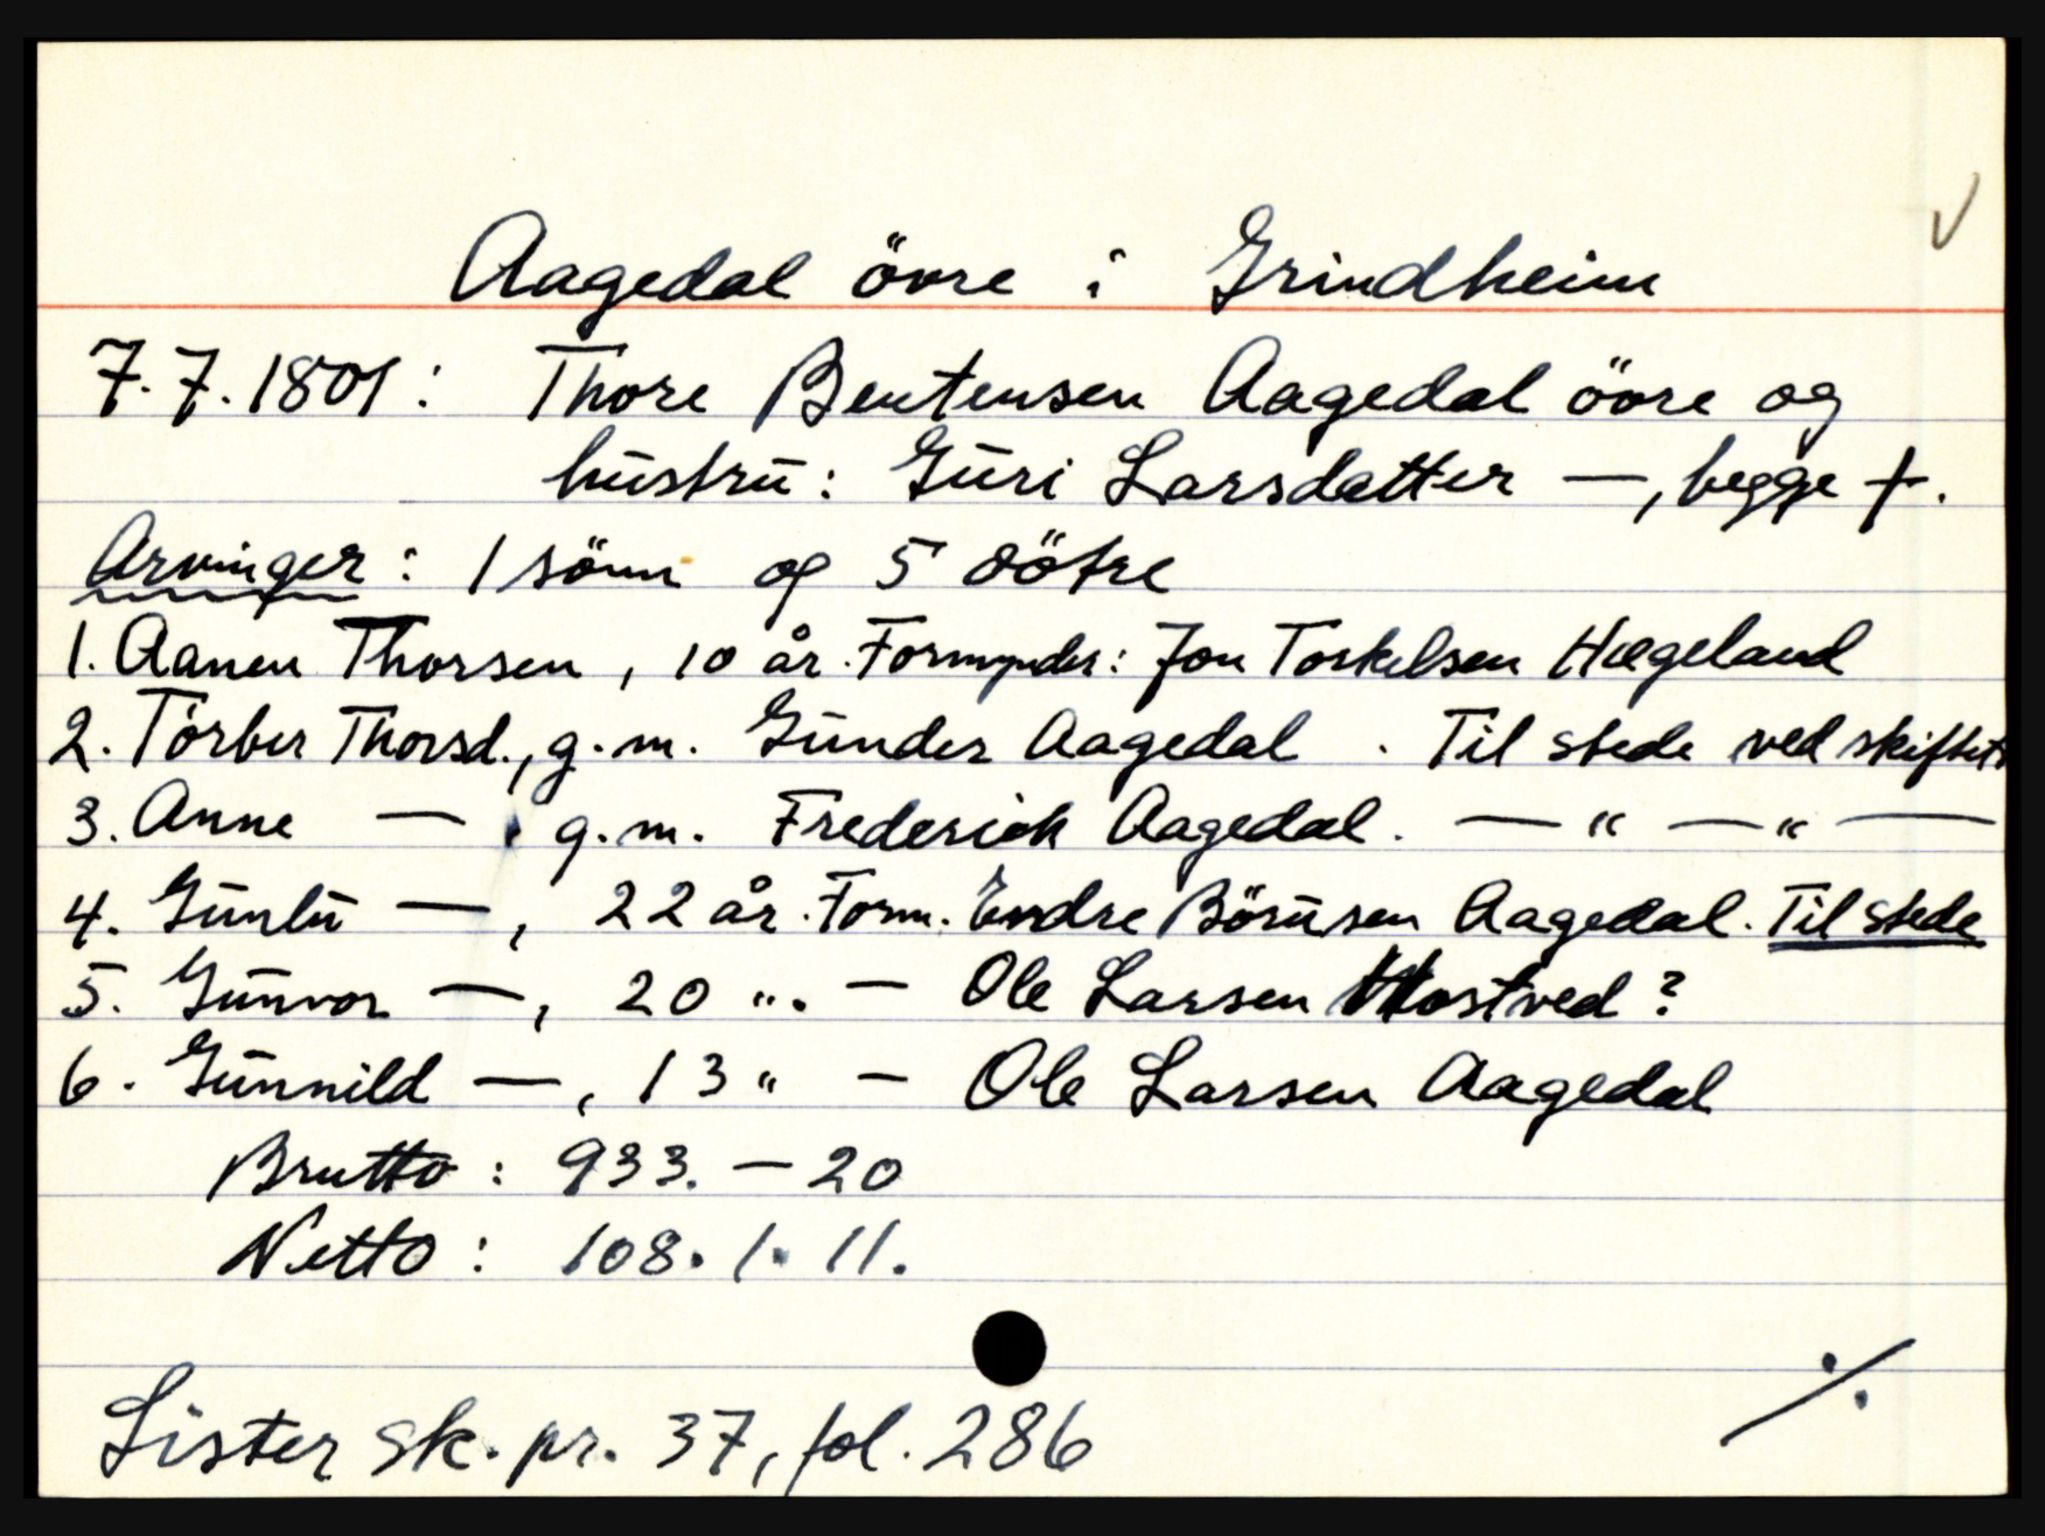 Aagedal övre i Grindheim
7.7.1801: Thore Bentensen Aagedal övre og
hustru: Guri Larsdatter —, begge †.
Arvinger: 1 sönn og 5 dötre
1. Aanen Thorsen, 10 år. Formynder: Jon Torkelsen Hægeland
2. Torber Thorsd., g.m. Gunder Aagedal. Til stede ved skiftet
3. Anne — , g.m. Frederich Aagedal. — " — " —
4. Gunlu —, 22 år. Form. Endre Börusen Aagedal. Til stede
5. Gunvor —, 20 ". — Ole Larsen Hostved?
6. Gunnild —, 13 " — Ole Larsen Aagedal
Brutto: 933. — 20
Netto: 108. 1. 11.
Lister sk. pr. 37, fol. 286